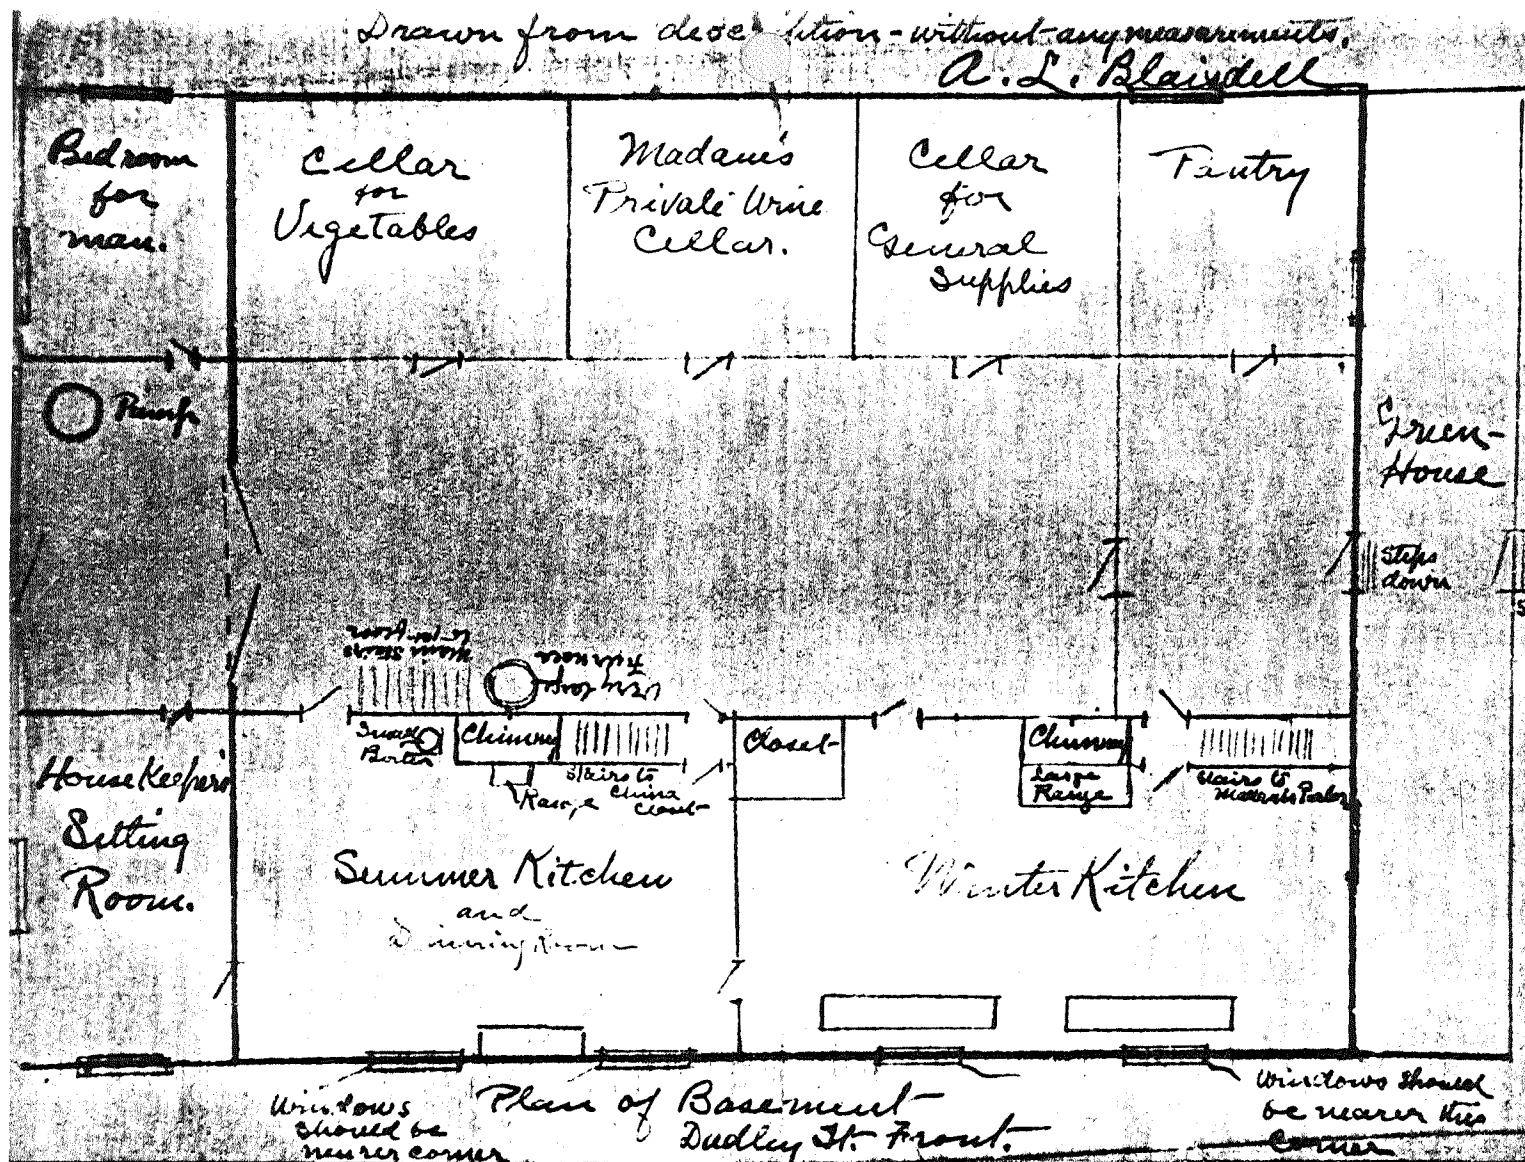 Drawn from desc ition - without any measurements.
A. L. Blaisdell
Bedroom
for
man.
Cellar
for
Vegetables
Madam's
Private Wine
Cellar.
Cellar
for
General
Supplies
Pantry
Pump
Green-
House
Steps
down
Main Stairs
to 1st floor
Very large
Furnace
Small
Boiler
Chimney
Stairs to
China
Closet
Range
Closet
Chimney
Large
Range
Stairs to
Madam's Parlor
House Keeper's
Sitting
Room.
Summer Kitchen
and
Dinning Room
Winter Kitchen
Windows
should be
nearer corner
Plan of Basement
Dudley St. Front.
Windows should
be nearer this
corner